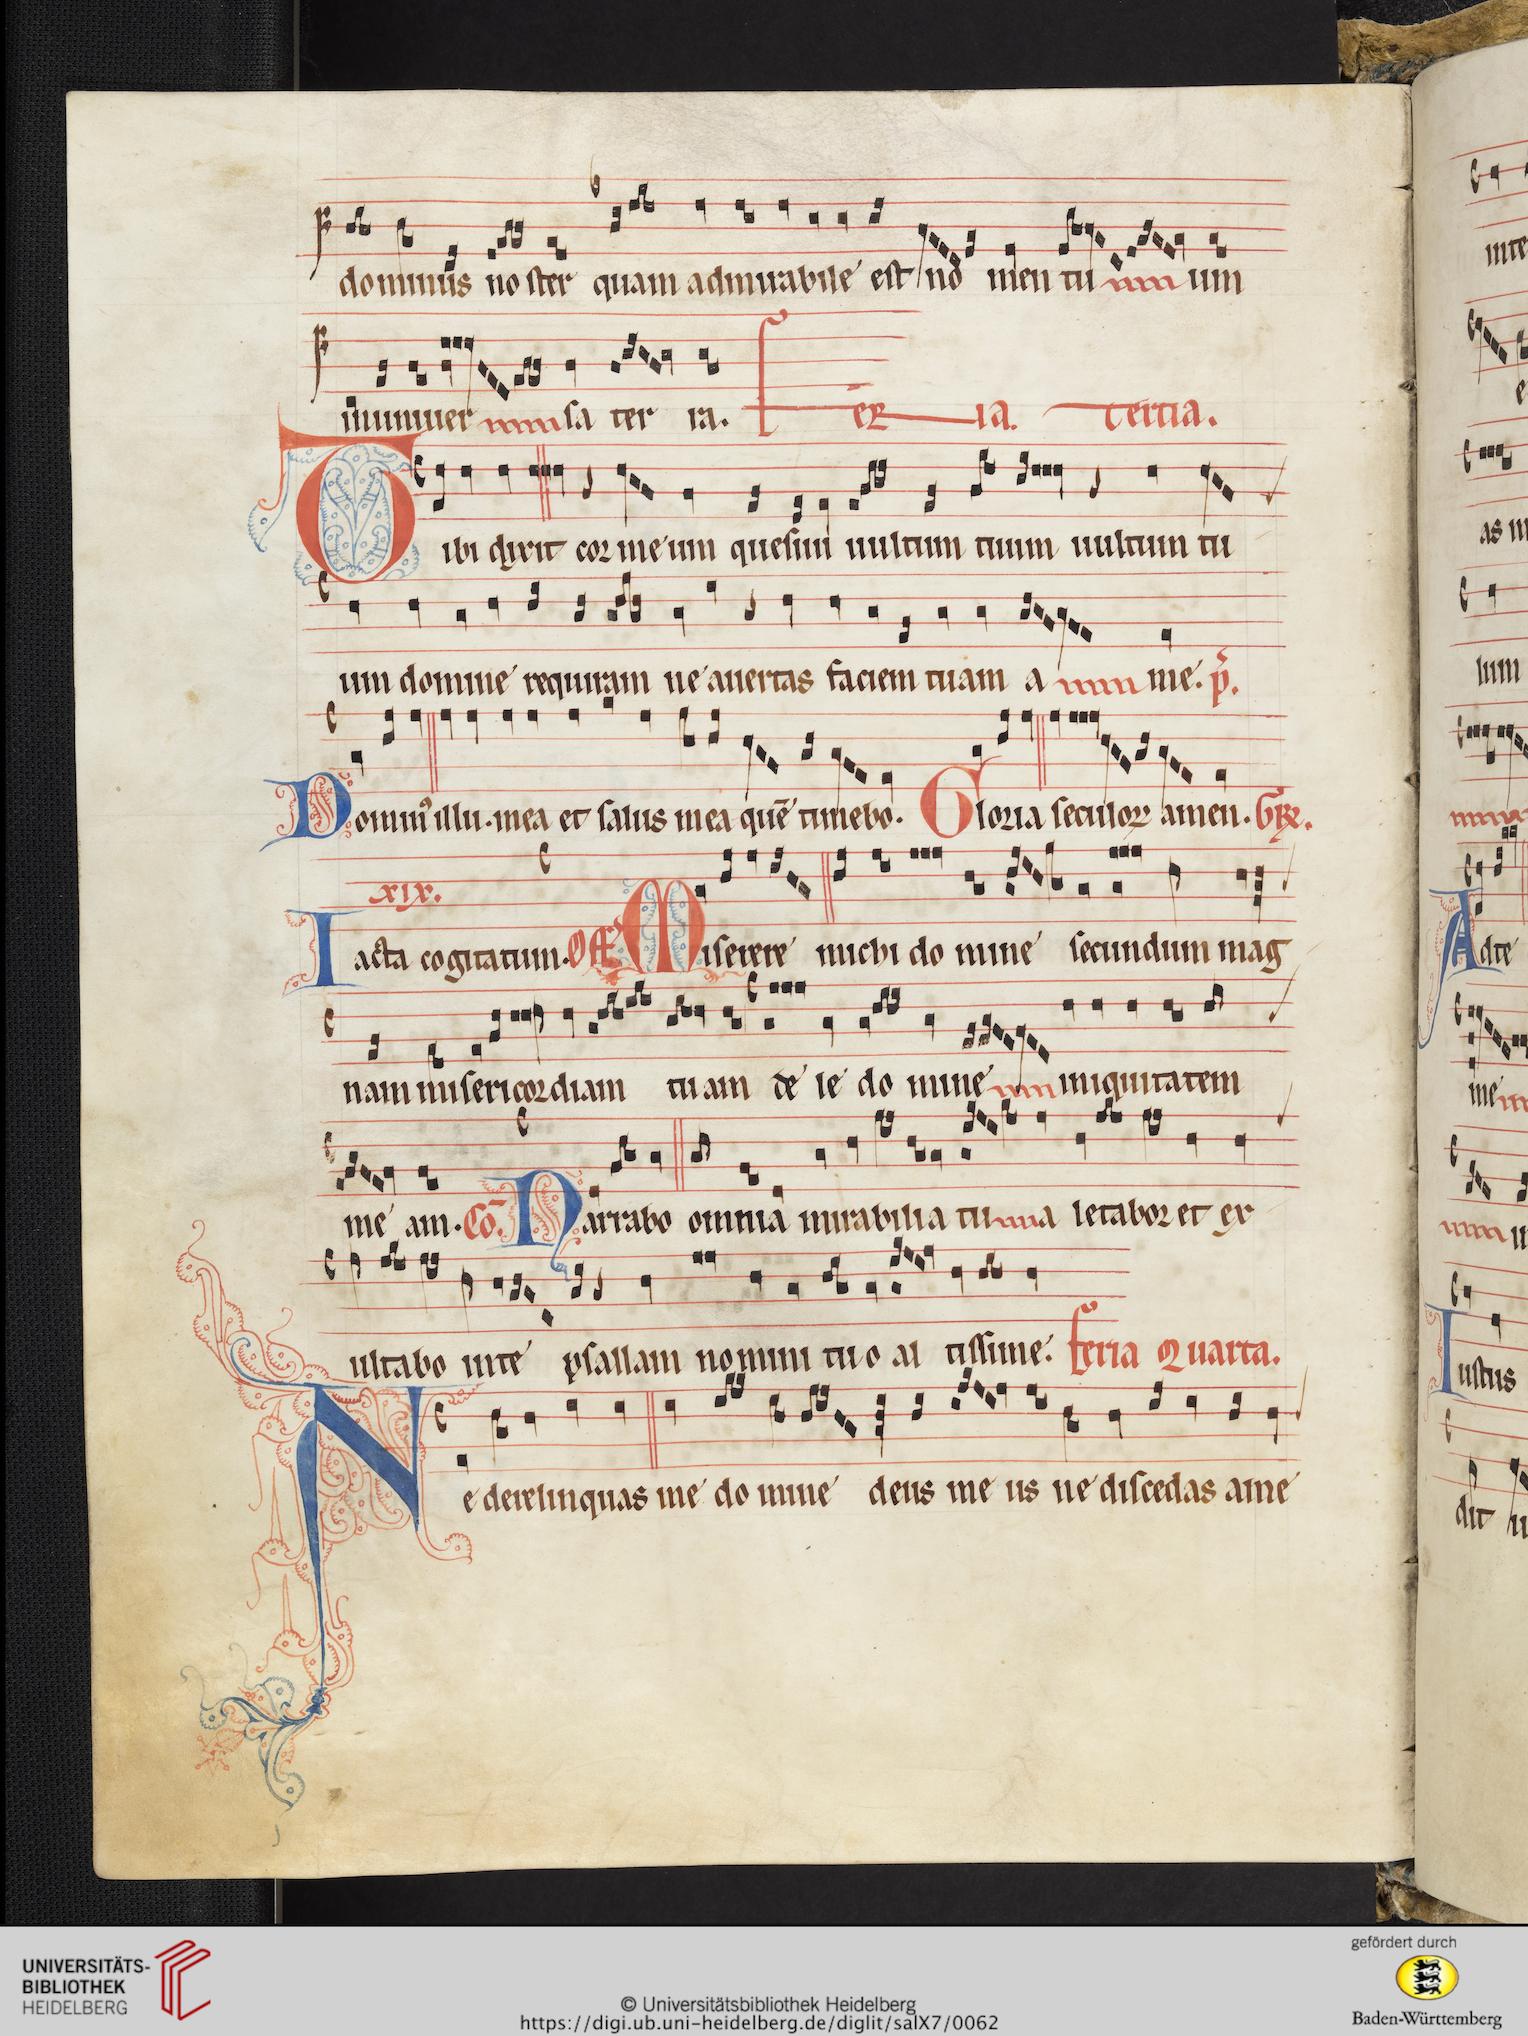 dominus noster quam admirabile est no men tu um
in univer sa ter ra. Feria Tertia.
Tibi dixit cor meum quesivi vultum tuum vultum tu
um domine requiram ne avertas faciem tuam a me. p̄.
Domin⁹ illu. mea et salus mea quē timebo. Gloria seculoꝝ amen. Gr̄.
xix.
Iacta cogitatum. Off̄ Miserere michi do mine secundum mag
nam misericordiam tuam de le do mine iniquitatem
me am. Cō. Narrabo omnia mirabilia tu a letabor et ex
ultabo inte psallam nomini tuo al tissime. Feria Quarta.
Ne derelinquas me do mine deus me us ne discedas ame
inte
as
lum
Adte
me
Iustus
dit
UNIVERSITÄTS-
BIBLIOTHEK
HEIDELBERG
© Universitätsbibliothek Heidelberg
https://digi.ub.uni-heidelberg.de/diglit/salX7/0062
gefördert durch
Baden-Württemberg